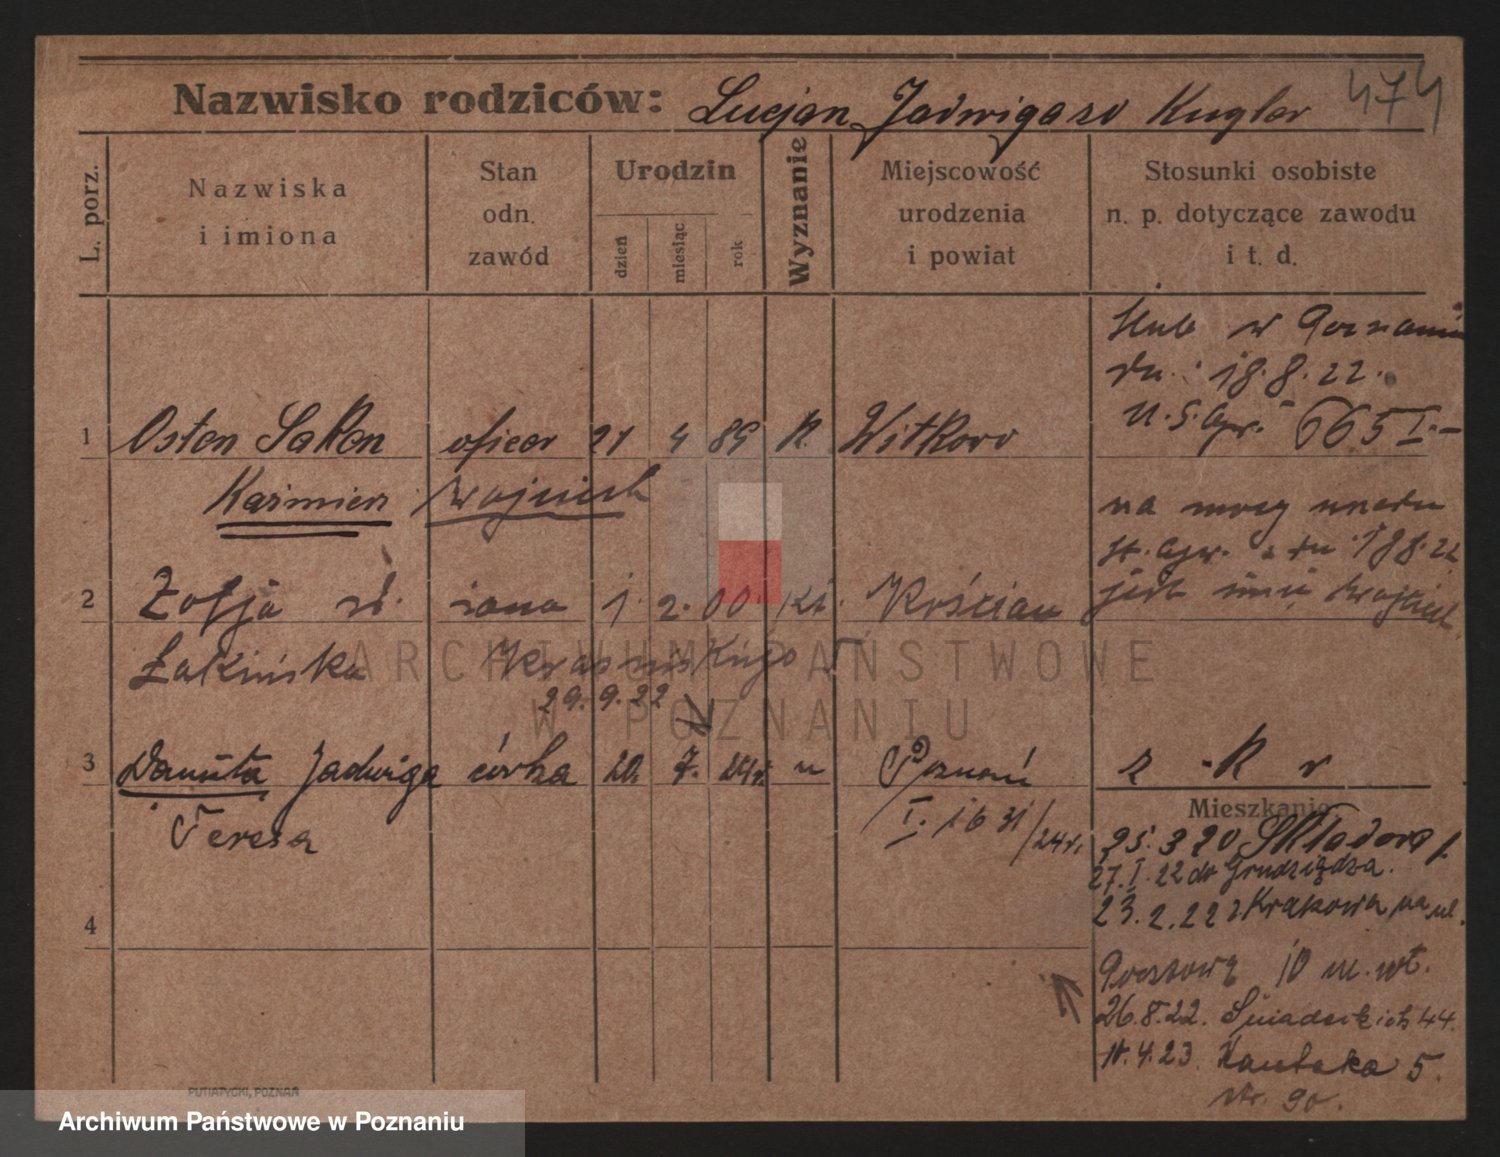 Nazwisko rodziców: Lucjan, Jadwiga zd Kugler 474
L. porz.
Nazwiska
i imiona
Stan
odn.
zawód
Urodzin
dzień
miesiąc
rok
Wyznanie
Miejscowość
urodzenia
i powiat
Stosunki osobiste
n. p. dotyczące zawodu
i t. d.
ślub w Poznaniu
dn. 18.8.22.
665 I.-
1 Osten Saken oficer 21 4 89 k. Witkowo
Kaźmierz Wojciech
na mocy
18 8. 22
jest imię Wojciech
2 Zofja zd. żona 1. 2. 00. kt. Kościan
Łakińska
29.9.22
3 Danuta Jadwiga córka 20. 7. 24r. " Poznań
Teresa
I. 1631/24r.
z K r
Mieszkanie
25. 3 20 Składowa
27. I. 22 do Grudziądza.
23. 2. 22 z Krakowa na ul.
Pocztową 10 m. wł.
26.8.22. Śniadeckich 44.
11. 4. 23. Kantaka 5.
str. 90.
4
PUTIATYCKI, POZNAŃ
ARCHIWUM PAŃSTWOWE
W POZNANIU
Archiwum Państwowe w Poznaniu